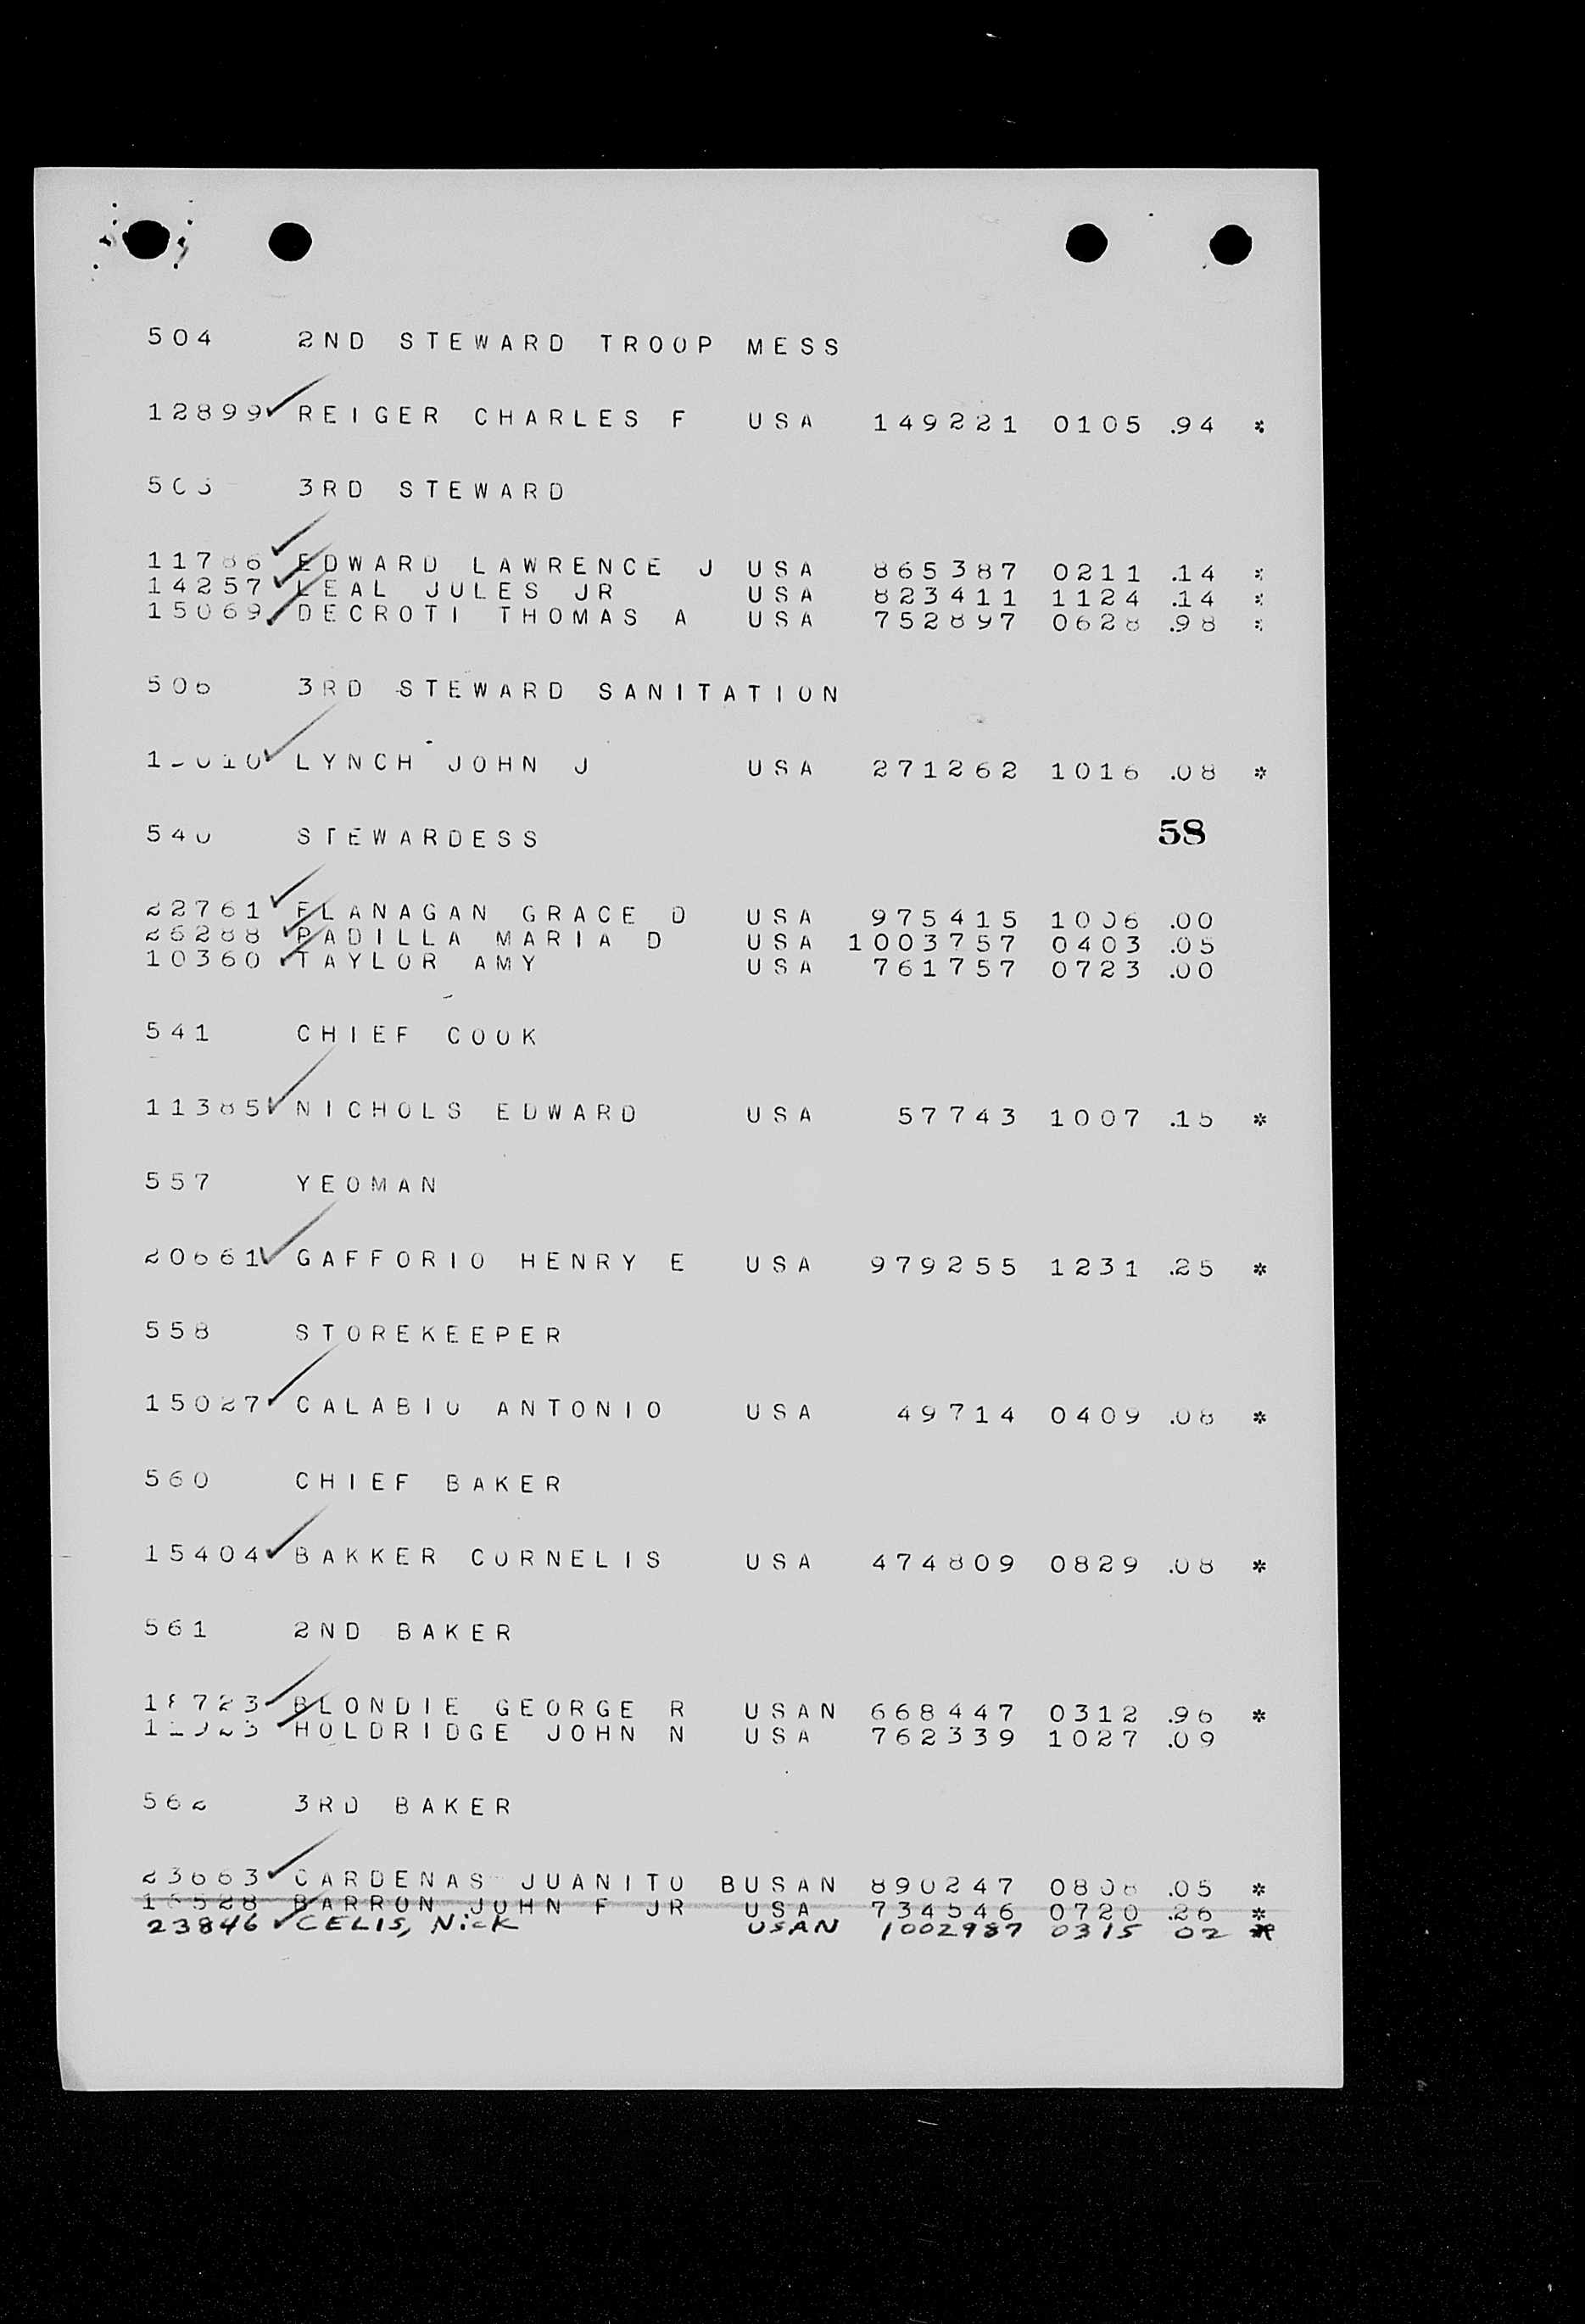 504 2ND STEWARD TROOP MESS
12899 REIGER CHARLES F USA 149221 0105 .94 *
505 3RD STEWARD
11786 EDWARD LAWRENCE J USA 865387 0211 .14 *
14257 LEAL JULES JR USA 823411 1124 .14 *
15069 DECROTI THOMAS A USA 752897 0628 .98 *
506 3RD STEWARD SANITATION
LYNCH JOHN J USA 271262 1016 .08 *
540 STEWARDESS
58
22761 FLANAGAN GRACE D USA 975415 1006 .00
26288 PADILLA MARIA D USA 1003757 0403 .05
10360 TAYLOR AMY USA 761757 0723 .00
541 CHIEF COOK
11385 NICHOLS EDWARD USA 57743 1007 .15 *
557 YEOMAN
20661 GAFFORIO HENRY E USA 979255 1231 .25 *
558 STOREKEEPER
15027 CALABIO ANTONIO USA 49714 0409 .08 *
560 CHIEF BAKER
15404 BAKKER CORNELIS USA 474809 0829 .08 *
561 2ND BAKER
BLONDIE GEORGE R USAN 668447 0312 .96 *
HOLDRIDGE JOHN N USA 762339 1027 .09
562 3RD BAKER
23663 CARDENAS JUANITO B USAN 890247 0808 .05 *
BARRON JOHN F JR USA 734546 0720 .26 *
23846 CELIS, Nick USAN 1002987 0315 02 *